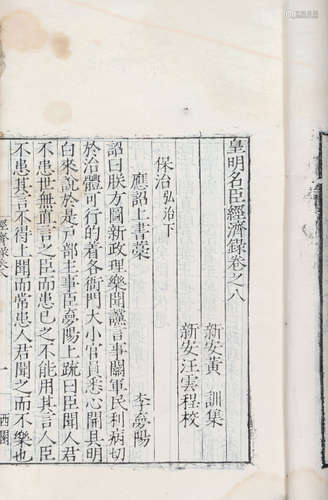 皇明名臣經濟錄卷之八
新安黃　訓集
新安汪雲程校
保治弘治下
應詔上書藁　李夢陽
詔曰朕方圖新政理樂聞讜言事關軍民利病切
於治體可行的着各衙門大小官員悉心開具明
白來說於是户部主事臣夢陽上疏曰臣聞人君
不患世無直言之臣而患己之不能用其言人臣
不患其言不得上聞而常患人君聞之而不樂也
經濟錄卷八
一